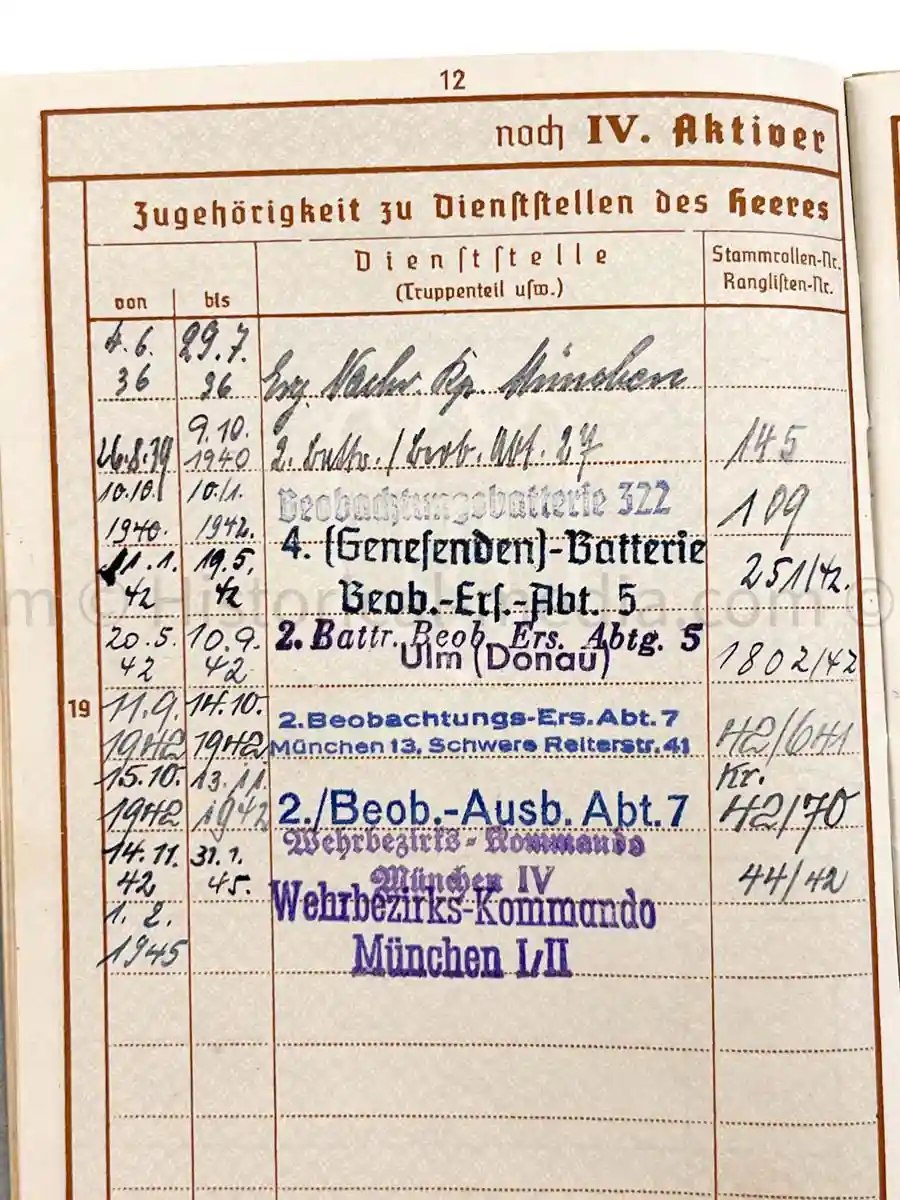 12
noch IV. Aktiver
Zugehörigkeit zu Dienststellen des Heeres
von
bis
Dienststelle
(Truppenteil usw.)
Stammrollen-Nr.
Ranglisten-Nr.
4.6. 29.7.
36 36 Erg. Nachr. Kp. München
26.8.39 9.10. 1940 2. Battr./Beob. Abt. 27 145
10.10. 10.1. Beobachtungsbatterie 322
1940. 1942. 109
11.1. 19.5. 4. (Genesenden)-Batterie
42 42 Beob.-Ers.-Abt. 5 251/42.
20.5. 10.9. 2. Battr. Beob. Ers. Abtg. 5
42 42 Ulm (Donau) 1802/42
19
11.9. 14.10. 2.Beobachtungs-Ers.Abt.7
1942 1942 München 13, Schwere Reiterstr.41 42/641
15.10. 13.11. Kr.
1942 1942 2./Beob.-Ausb. Abt.7 42/70
14.11. 31.1. Wehrbezirks-Kommando
42 45. München IV 44/42
1.2. Wehrbezirks-Kommando
1945 München I/II